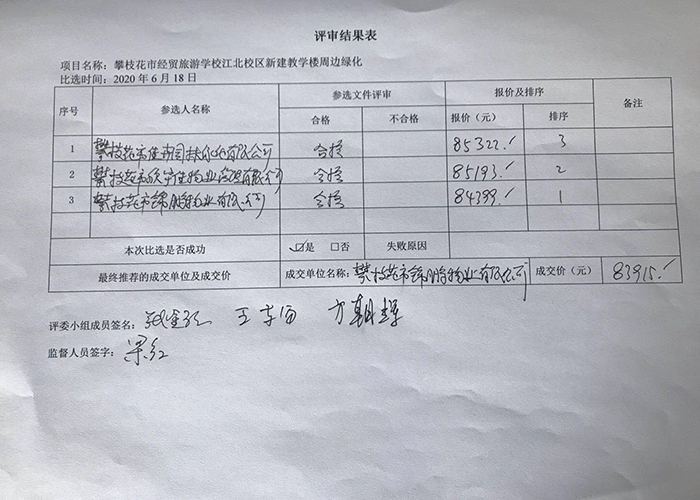 评审结果表
项目名称：攀枝花市经贸旅游学校江北校区新建教学楼周边绿化
比选时间：2020 年 6 月 18 日
序号 参选人名称 参选文件评审 报价及排序 备注
合格 不合格 报价（元） 排序
1 攀枝花市 园林 有限公司 合格 85322./ 3
2 攀枝花市 物业管理有限公司 合格 85193./ 2
3 攀枝花市锦 物业有限公司 合格 84399./ 1
本次比选是否成功 ☑是 □否 失败原因
最终推荐的成交单位及成交价 成交单位名称：攀枝花市锦 物业有限公司 成交价（元） 83915./
评委小组成员签名： 方朝辉
监督人员签字：梁红